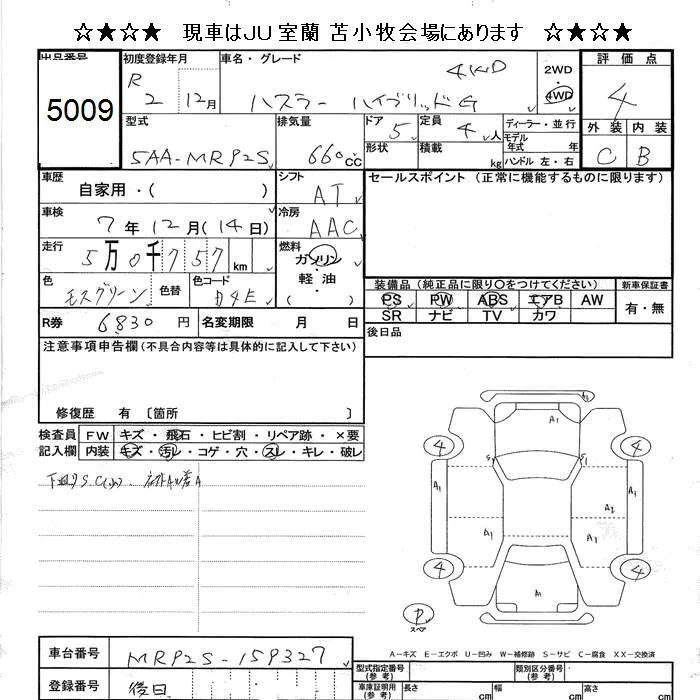 ☆★☆★ 現車はJU室蘭 苫小牧会場にあります ☆★☆★
出品番号 初度登録年月 車名・グレード 評価点
5009 R 2 12月 ハスラー ハイブリッドG 4WD 2WD 4WD 4
型式 排気量 ドア 定員 ディーラー・並行 外装 内装
5AA-MRP2S 660cc 5 4人 モデル年式 年式 C B
形状 積載 kg ハンドル 左・右
車歴 自家用・( ) シフト AT セールスポイント (正常に機能するものに限ります)
車検 7年12月(14日) 冷房 AAC
走行 5万0千757km 燃料 ガソリン 軽油 ( )
色 モスグリーン 色替 色コード 装備品 (純正品に限り〇をつけてください) 新車保証書
PS PW ABS エアB AW 有・無
SR ナビ TV カワ
R券 6830円 名変期限 月 日 後日品
注意事項申告欄(不具合内容等は具体的に記入して下さい)
修復歴 有 〔箇所 〕
検査員 FW キズ・飛石・ヒビ割・リペア跡・×要
記入欄 内装 キズ・汚レ・コゲ・穴・スレ・キレ・破レ
下廻りS.C(小).
A1
4 S1 S1 4
A1 A1
A2
A1 A1
4 4
A1
P
スペア
A-キズ E-エクボ U-凹み W-補修跡 S-サビ C-腐食 XX-交換済
車台番号 MRP2S-159327 型式指定番号(参考) 類別区分番号(参考)
登録番号 後日 車庫証明用(参考) 長さ cm 幅 cm 高さ cm